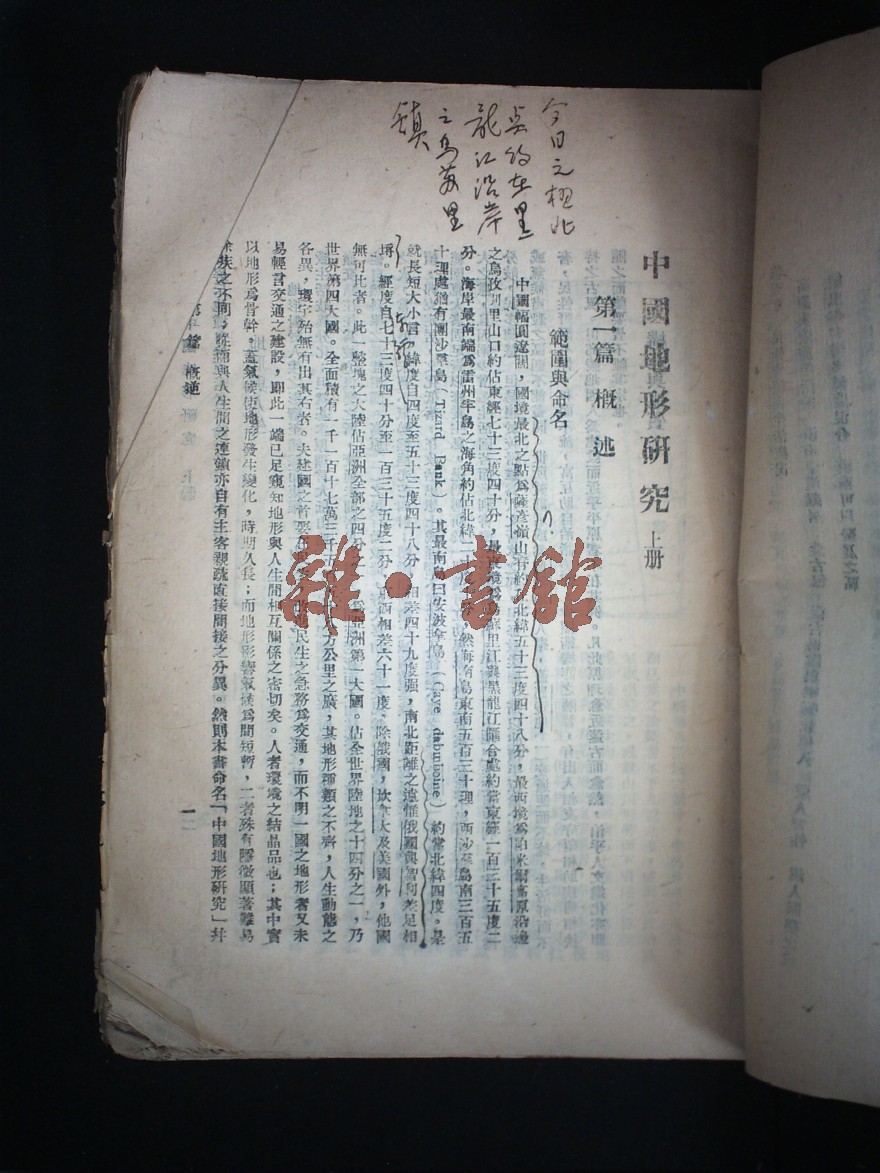 今日之極北
点約在黑
龍江沿岸
之烏蘇里
鎮
中國地形研究 上册
第一篇 概述
範圍與命名
中國幅圓遼闊，國境最北之點為薩彥嶺山脊約占北緯五十三度四十八分，最西境為帕米爾高原沿邊
之烏孜別里山口約佔東經七十三度四十分，最東境為烏蘇里江與黑龍江匯合處約當東經一百三十五度二
分。海岸最南端為雷州半島之海角約佔北緯二十度，然海南島東南五百三十理，西沙羣島南三百五
十理處猶有團沙羣島（Tizard Bank）。其最南島曰安波拿島（Caye dabmboine）約當北緯四度。是
就長短大小言，緯度自四度至五十三度四十八分，相差四十九度强，南北距離之遠惟俄國與智利差足相
埒。經度自七十三度四十分至一百三十五度二分，東西相差六十一度，除俄國，坎拿大及美國外，他國
無可比者。此一整塊之大陸佔亞洲全部之四分之一，為亞洲第一大國。佔全世界陸地之十四分之一，乃
世界第四大國。全面積有一千一百十七萬三千五百 方公里之廣，其地形種類之不齊，人生動態之
各異，環宇殆無有出其右者。夫建國之首要在 民生之急務為交通，而不明一國之地形者又未
易輕言交通之建設，即此一端已足窺知地形與人生間相互關係之密切矣。人者環境之結晶品也；其中實
以地形為骨幹。蓋氣候使地形發生變化，時期久長；而地形影響氣候為間短暫，二者殊有隱微顯著難易
徐疾之不同；從而與人生間之連鎖亦自有主客親疏直接間接之分異。然則本書命名「中國地形研究」幷
第一篇 概述
一
雜·書館